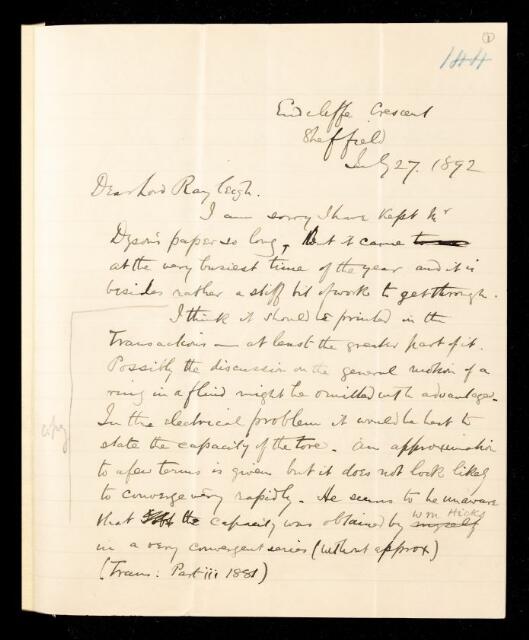 1
144
Endcliffe Crescent
Sheffield
July 27. 1892
Dear Lord Rayleigh.
I am sorry I have kept Mr
Dyson's paper so long, But it came to
at the very busiest time of the year and it is
besides rather a stiff bit of work to get through.
I think it should be printed in the
Transactions — at least the greater part of it.
Possibly the discussion on the general motion of a
ring in a fluid might be omitted with advantage.
In the electrical problem it would be best to
state the capacity of the tore. An approximation
to a few terms is given but it does not look likely
copy
to converge very rapidly. He seems to be unaware
Wm Hicks
that the capacity was obtained by myself
in a very convergent series (without approx)
(Trans: Part iii 1881)